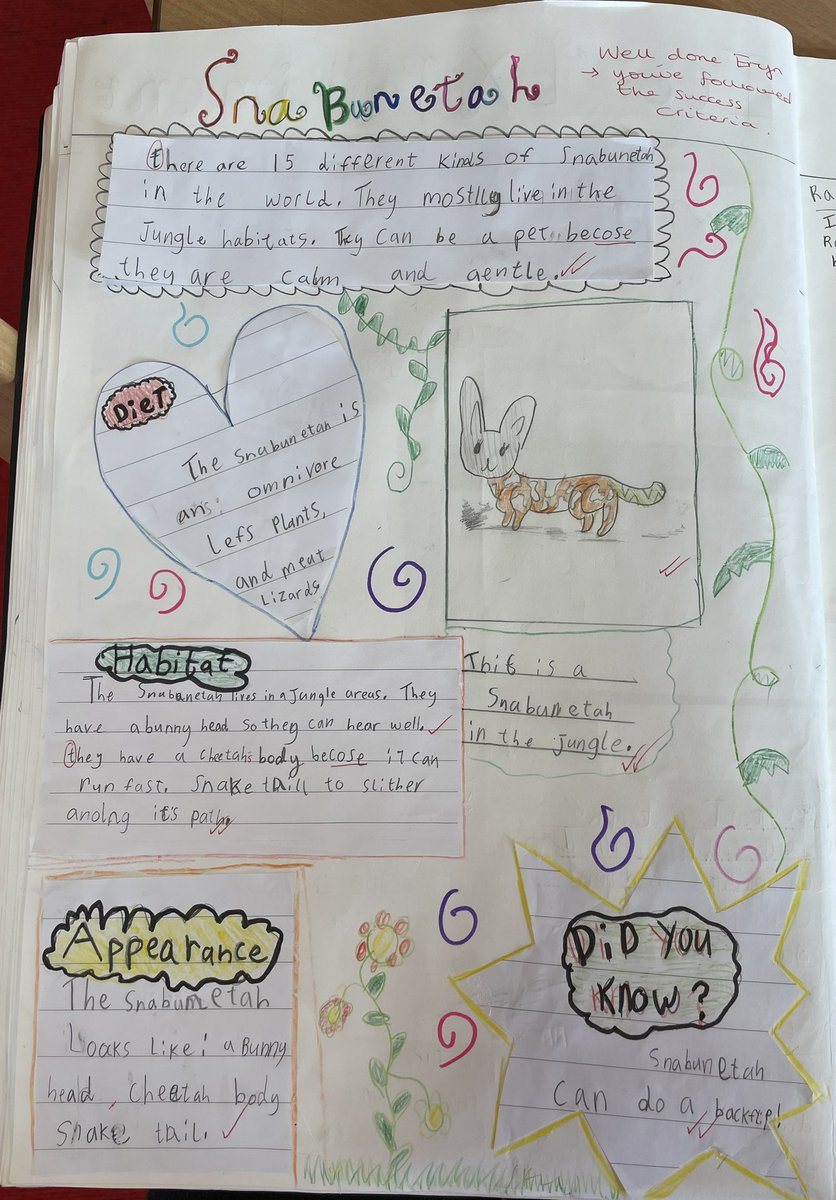 Snabunetah
Well done Eryn
→ you've followed
the success
criteria.
there are 15 different kinds of Snabunetah
in the world. They mostlly live in the
Jungle habitats. They can be a pet becose
they are calm and gentle.
Diet
The Snabunetah is
an omnivore
Lefs Plants,
and meat
Lizards
Habitat
The Snabunetah lives in a Jungle areas. They
have a bunny head so they can hear well.
they have a cheetahs body becose it can
run fast. Snake tail to slither
anolng it's path
This is a
Snabunetah
in the jungle.
Appearance
The Snabunetah
Looks Like a Bunny
head, cheetah body
Snake tail.
DiD You
Know?
Snabunetah
can do a backflip!
Ra
I